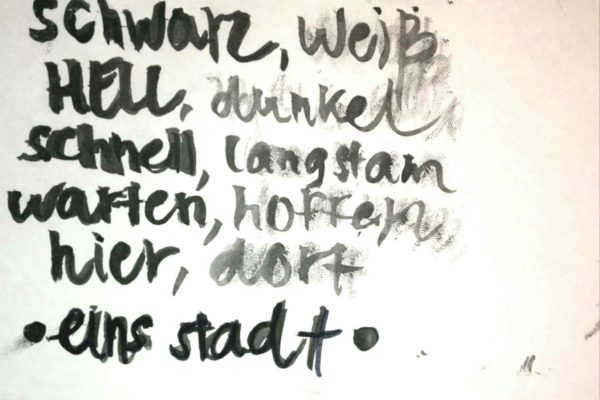 schwarz, weiß
HELL, dunkel
schnell, langstam
warten, hoffen,
hier, dort
• eins stadt •